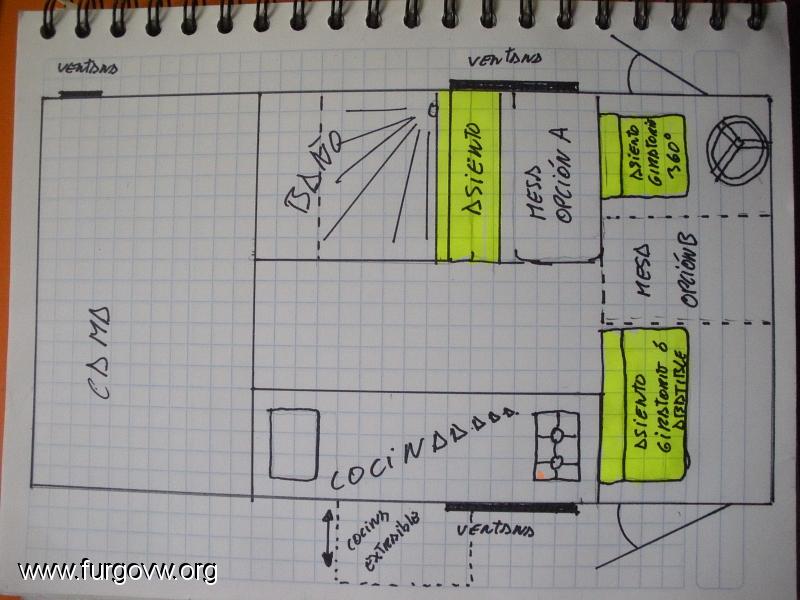 VENTANA
VENTANA
BAÑO
ASIENTO
MESA
OPCIÓN A
ASIENTO
GIRATORIO
360º
MESA
OPCIÓN B
CAMA
ASIENTO
GIRATORIO Ó
ABATIBLE
COCINAAAAAA
COCINA
EXTRAIBLE
VENTANA
www.furgovw.org